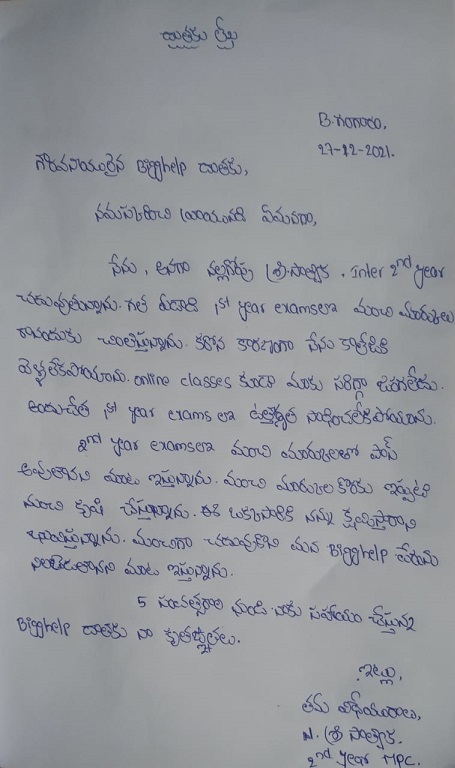 దాతకు లేఖ
B.గంగారం,
27-12-2021.
గౌరవనీయులైన Bigghelp దాతకు,
నమస్కరించి వ్రాయునది ఏమనగా,
నేను, అనగా నల్లగోపు శ్రీ సాత్విక. Inter 2nd year
చదువుతున్నాను. గత ఏడాది 1st year examsలో మంచి మార్కులు
రానందుకు చింతిస్తున్నాను. కరోన కారణంగా నేను కాలేజికి
వెళ్ళలేకపోయాను. online classes కూడా మాకు సరిగ్గా జరగలేదు.
అందుచేత 1st year exams లో ఉత్తీర్ణత సాధించలేకపోయాను.
2nd year examsలో మంచి మార్కులతో పాస్
అవుతానని మాట ఇస్తున్నాను. మంచి మార్కుల కొరకు ఇప్పటి
నుంచి కృషి చేస్తున్నాను. ఈ ఒక్కసారికి నన్ను క్షమిస్తారాని
భావిస్తున్నాను. మంచిగా చదువుకొని మన Bigghelp పేరును
నిలబెడతానని మాట ఇస్తున్నాను.
5 సంవత్సరాల నుండి నాకు సహాయం చేస్తున్న
Bigghelp దాతకు నా కృతజ్ఞతలు.
ఇట్లు,
తమ విధేయురాలు,
N. శ్రీ సాత్విక.
2nd year MPC.